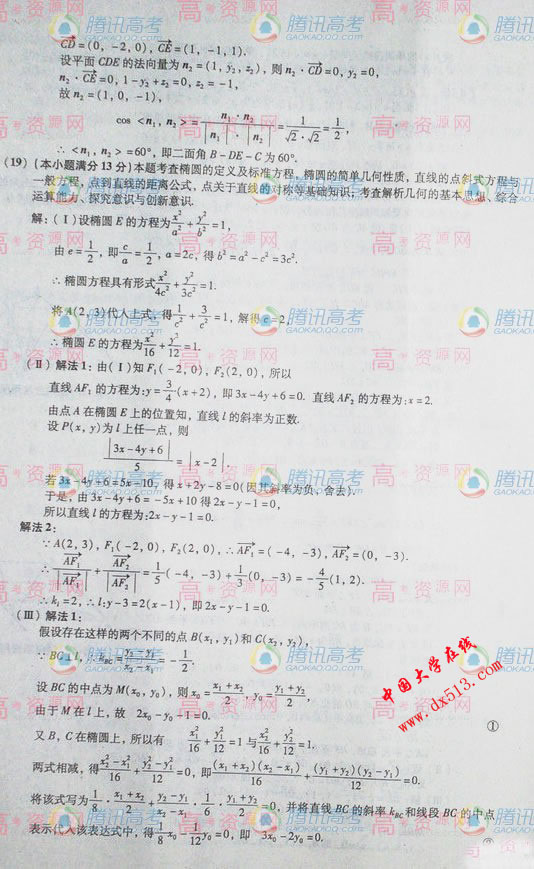 $\overrightarrow{CD}=(0,-2,0),\overrightarrow{CE}=(1,-1,1).$
设平面 CDE 的法向量为 $n_2=(1,y_2,z_2)$, 则 $n_2\cdot\overrightarrow{CD}=0,y_2=0,$
$n_2\cdot\overrightarrow{CE}=0,1-y_2+z_2=0,z_2=-1,$
故 $n_2=(1,0,-1),$
$\cos<n_1,n_2>=\frac{n_1\cdot n_2}{|n_1|\cdot|n_2|}=\frac{1}{\sqrt{2}\cdot\sqrt{2}}=\frac{1}{2},$
∴ $<n_1,n_2>=60°$, 即二面角 B-DE-C 为 60°.
(19) (本小题满分 13 分) 本题考查椭圆的定义及标准方程, 椭圆的简单几何性质, 直线的点斜式方程与
一般方程, 点到直线的距离公式, 点关于直线的对称等基础知识; 考查解析几何的基本思想、综合
运算能力、探究意识与创新意识.
解: (Ⅰ) 设椭圆 E 的方程为 $\frac{x^2}{a^2}+\frac{y^2}{b^2}=1,$
由 $e=\frac{1}{2}$, 即 $\frac{c}{a}=\frac{1}{2},a=2c$, 得 $b^2=a^2-c^2=3c^2.$
∴ 椭圆方程具有形式 $\frac{x^2}{4c^2}+\frac{y^2}{3c^2}=1.$
将 A(2,3) 代入上式, 得 $\frac{1}{c^2}+\frac{3}{c^2}=1$, 解得 c=2,
∴ 椭圆 E 的方程为 $\frac{x^2}{16}+\frac{y^2}{12}=1.$
(Ⅱ) 解法 1: 由 (Ⅰ) 知 $F_1(-2,0),F_2(2,0)$, 所以
直线 $AF_1$ 的方程为: $y=\frac{3}{4}(x+2)$, 即 3x-4y+6=0. 直线 $AF_2$ 的方程为: x=2.
由点 A 在椭圆 E 上的位置知, 直线 l 的斜率为正数.
设 P(x,y) 为 l 上任一点, 则
$\frac{|3x-4y+6|}{5}=|x-2|.$
若 3x-4y+6=5x-10, 得 x+2y-8=0 (因其斜率为负, 舍去).
于是, 由 3x-4y+6=-5x+10 得 2x-y-1=0,
所以直线 l 的方程为: 2x-y-1=0.
解法 2:
∵ $A(2,3),F_1(-2,0),F_2(2,0)$, ∴ $\overrightarrow{AF_1}=(-4,-3),\overrightarrow{AF_2}=(0,-3).$
∴ $\frac{\overrightarrow{AF_1}}{|\overrightarrow{AF_1}|}+\frac{\overrightarrow{AF_2}}{|\overrightarrow{AF_2}|}=\frac{1}{5}(-4,-3)+\frac{1}{3}(0,-3)=-\frac{4}{5}(1,2).$
∴ $k_l=2$, ∴ l: y-3=2(x-1), 即 2x-y-1=0.
(Ⅲ) 解法 1:
假设存在这样的两个不同的点 $B(x_1,y_1)$ 和 $C(x_2,y_2)$,
∵ BC⊥l, ∴ $k_{BC}=\frac{y_2-y_1}{x_2-x_1}=-\frac{1}{2}.$
设 BC 的中点为 $M(x_0,y_0)$, 则 $x_0=\frac{x_1+x_2}{2},y_0=\frac{y_1+y_2}{2},$
由于 M 在 l 上, 故 $2x_0-y_0-1=0.$ ①
又 B,C 在椭圆上, 所以有 $\frac{x_1^2}{16}+\frac{y_1^2}{12}=1$ 与 $\frac{x_2^2}{16}+\frac{y_2^2}{12}=1.$
两式相减, 得 $\frac{x_2^2-x_1^2}{16}+\frac{y_2^2-y_1^2}{12}=0$, 即 $\frac{(x_1+x_2)(x_2-x_1)}{16}+\frac{(y_1+y_2)(y_2-y_1)}{12}=0.$
将该式写为 $\frac{1}{8}\cdot\frac{x_1+x_2}{2}+\frac{y_2-y_1}{x_2-x_1}\cdot\frac{1}{6}\cdot\frac{y_1+y_2}{2}=0$, 并将直线 BC 的斜率 $k_{BC}$ 和线段 BC 的中点
表示代入该表达式中, 得 $\frac{1}{8}x_0-\frac{1}{12}y_0=0$, 即 $3x_0-2y_0=0.$ ②
中国大学在线
www.dx513.com
腾讯高考
GAOKAO.QQ.COM
高考资源网